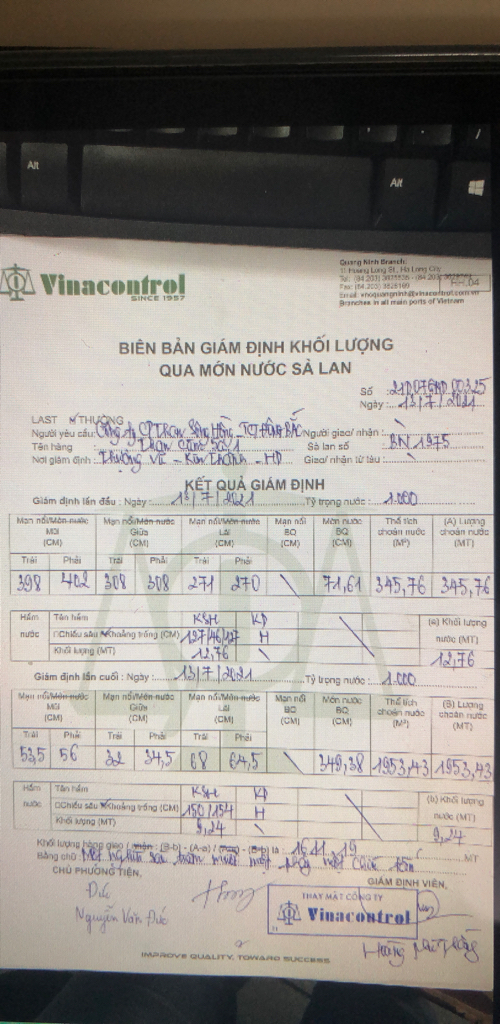 Alt
Alt
Vinacontrol
SINCE 1957
Quang Ninh Branch:
11 Hoang Long St., Ha Long City
Fax: (84.203) 3828169
Email: vncquangninh@vinacontrol.com.vn
Branches in all main ports of Vietnam
BIÊN BẢN GIÁM ĐỊNH KHỐI LƯỢNG
QUA MỚN NƯỚC SÀ LAN
Số :
Ngày: 13/7/2021
LAST THƯỜNG
Người yêu cầu: Công ty Người giao/ nhận :
Tên hàng : Than Sà lan số : BN 1975
Nơi giám định : Giao/ nhận từ tàu :
KẾT QUẢ GIÁM ĐỊNH
Giám định lần đầu : Ngày : 13/7/2021 Tỷ trọng nước : 1.000
Mạn nổi/Mớn nước Mũi (CM) Mạn nổi/Mớn nước Giữa (CM) Mạn nổi/Mớn nước Lái (CM) Mạn nổi BQ (CM) Mớn nước BQ (CM) Thể tích choán nước (M³) (A) Lượng choán nước (MT)
Trái Phải Trái Phải Trái Phải
398 402 308 308 271 270 \ 71,61 345,76 345,76
Hầm nước Tên hầm KSH KĐ (a) Khối lượng nước (MT)
□Chiều sâu Khoảng trống (CM) H
Khối lượng (MT) 12,76 12,76
Giám định lần cuối : Ngày : 13/7/2021 Tỷ trọng nước : 1.000
Mạn nổi/Mớn nước Mũi (CM) Mạn nổi/Mớn nước Giữa (CM) Mạn nổi/Mớn nước Lái (CM) Mạn nổi BQ (CM) Mớn nước BQ (CM) Thể tích choán nước (M³) (B) Lượng choán nước (MT)
Trái Phải Trái Phải Trái Phải
53,5 56 32 34,5 68 64,5 \ 349,38 1953,43 1953,43
Hầm nước Tên hầm KSH KĐ (b) Khối lượng nước (MT)
□Chiều sâu Khoảng trống (CM) 150/154 H
Khối lượng (MT) 9,24 9,24
Khối lượng hàng giao / (B-b) - (A-a) / là : MT
Bằng chữ : Một nghìn sáu trăm mươi một phẩy một chín tấn
CHỦ PHƯƠNG TIỆN, GIÁM ĐỊNH VIÊN,
Đức
Nguyễn Văn Đức
THAY MẶT CÔNG TY
Vinacontrol
IMPROVE QUALITY, TOWARD SUCCESS